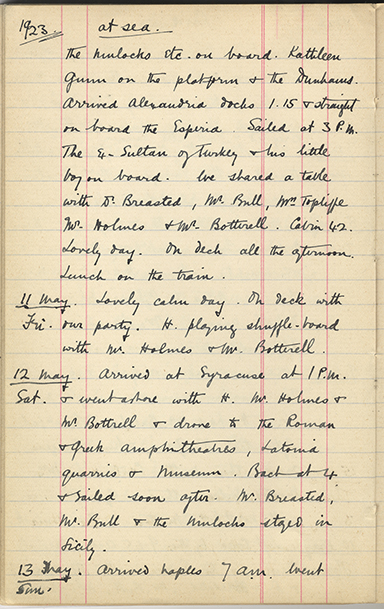 1923. at sea.
The Mulocks etc. on board. Kathleen
Gunn on the platform & the Dunhams.
Arrived Alexandria docks 1.15 & straight
on board the Esperia. Sailed at 3 P.M.
The Ex-Sultan of Turkey & his little
boy on board. We shared a table
with Dr. Breasted, Mr. Bull, Mrs Topliffe
Mr. Holmes & Mr. Bottrell. Cabin 42.
Lovely day. On deck all the afternoon.
Lunch on the train.
11 May. Lovely calm day. On deck with
Fri. our party. H. playing shuffle-board
with Mr. Holmes & Mr. Bottrell.
12 May. Arrived at Syracuse at 1 P.M.
Sat. & went ashore with H. Mr. Holmes &
Mr. Bottrell & drove to the Roman
& Greek amphitheatres, Latomia
quarries & Museum. Back at 4
& sailed soon after. Mr. Breasted,
Mr. Bull & the Mulocks stayed in
Sicily.
13 May. Arrived Naples 7 am. Went
Sun.